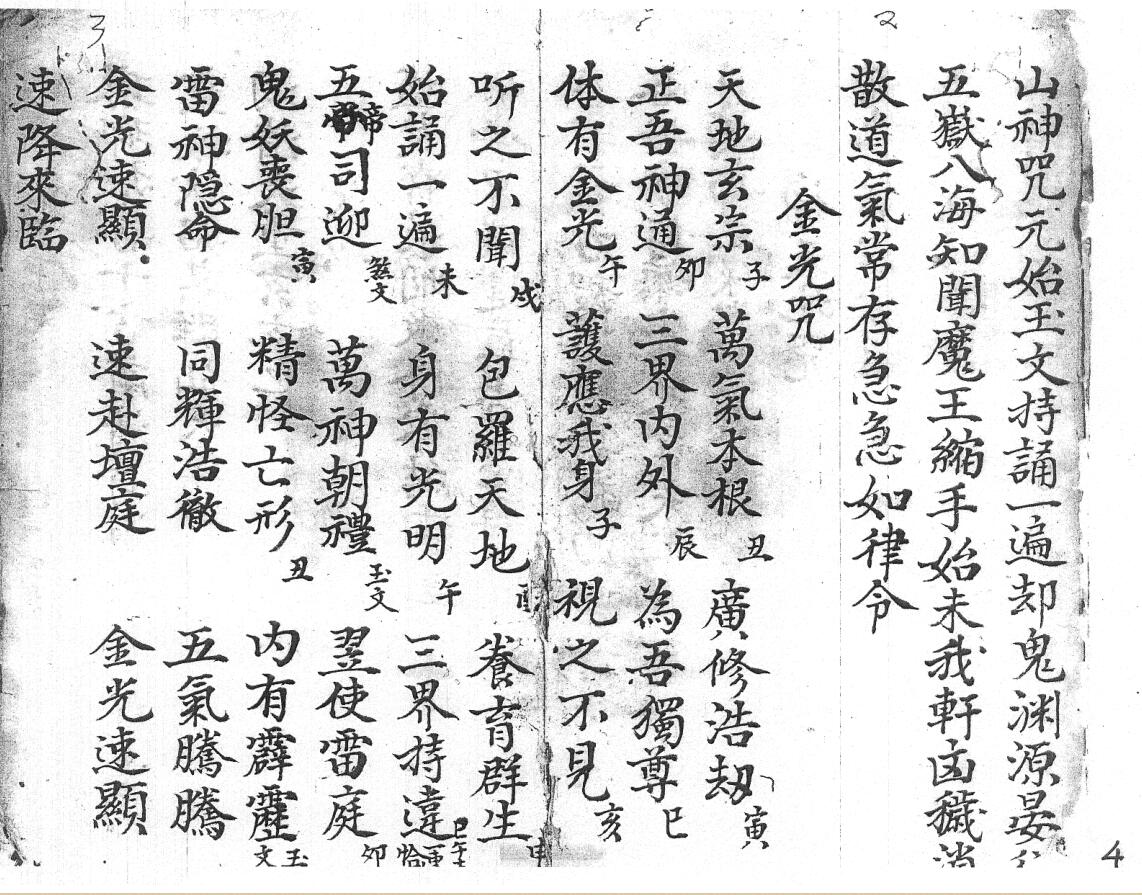 2
3
山神咒元始玉文持誦一遍却鬼渊源晏
五嶽八海知聞魔王縮手始未我軒凶穢消
散道氣常存急急如律令
金光咒
天地玄宗子 萬氣本根丑 廣修浩刼寅
正吾神通夘 三界内外辰 為吾獨尊巳
体有金光午 護應我身子 視之不見亥
听之不聞戌 包羅天地酉 養育群生申
始誦一遍未 身有光明午 三界持違
五帝司迎煞文 萬神朝禮玉文 翌使雷庭夘
鬼妖喪胆寅 精怪亡形丑 内有霹靂玉文
雷神隠命 同輝浩徹 五氣騰騰
金光速顯 速赴壇庭 金光速顯
速降來臨
4